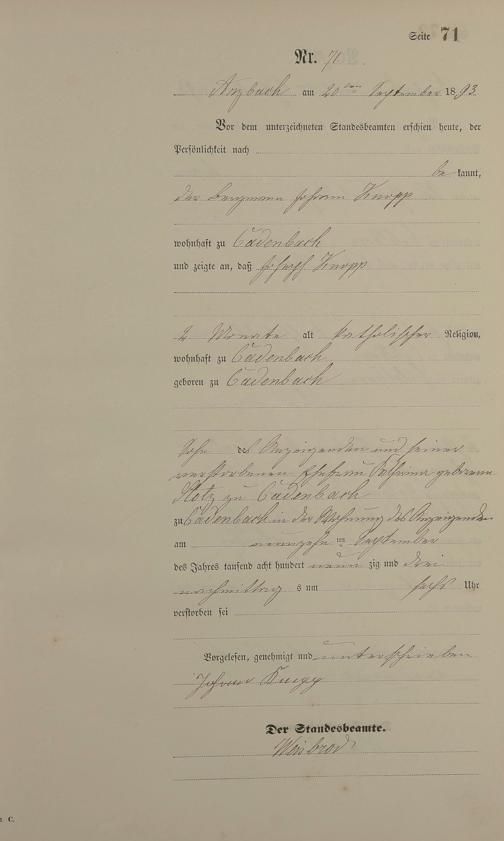 Seite 71
Nr. 71.
Arzbach am 20ten September 1893.
Vor dem unterzeichneten Standesbeamten erschien heute, der
Persönlichkeit nach
be kannt,
der Bergmann Johann Knopp
wohnhaft zu Cadenbach
und zeigte an, daß Joseph Knopp
2 Monate alt katholischer Religion,
wohnhaft zu Cadenbach
geboren zu Cadenbach
Sohn des Anzeigenden und seiner
verstorbenen Ehefrau geborene
zu Cadenbach
zu Cadenbach in der Wohnung des Anzeigenden
am September
des Jahres tausend acht hundert neun zig und drei
nachmittag s um sechs Uhr
verstorben sei
Vorgelesen, genehmigt und unterschrieben
Johann Knopp
Der Standesbeamte.
Weisbrod
C.